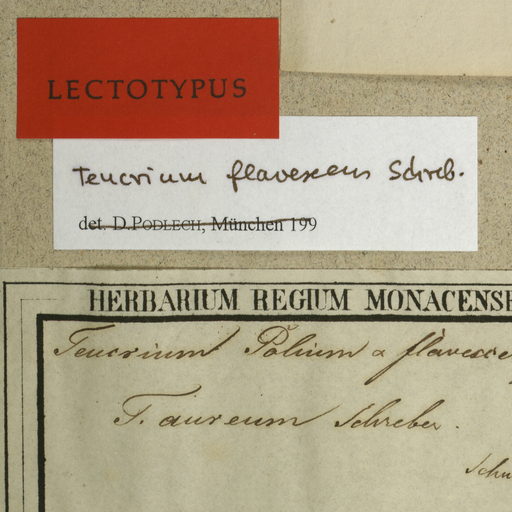 LECTOTYPUS
Teucrium flavescens Schreb.
det. D.PODLECH, München 199
HERBARIUM REGIUM MONACENSE
Teucrium Polium α flavesce
T. aureum Schreber.
Schr